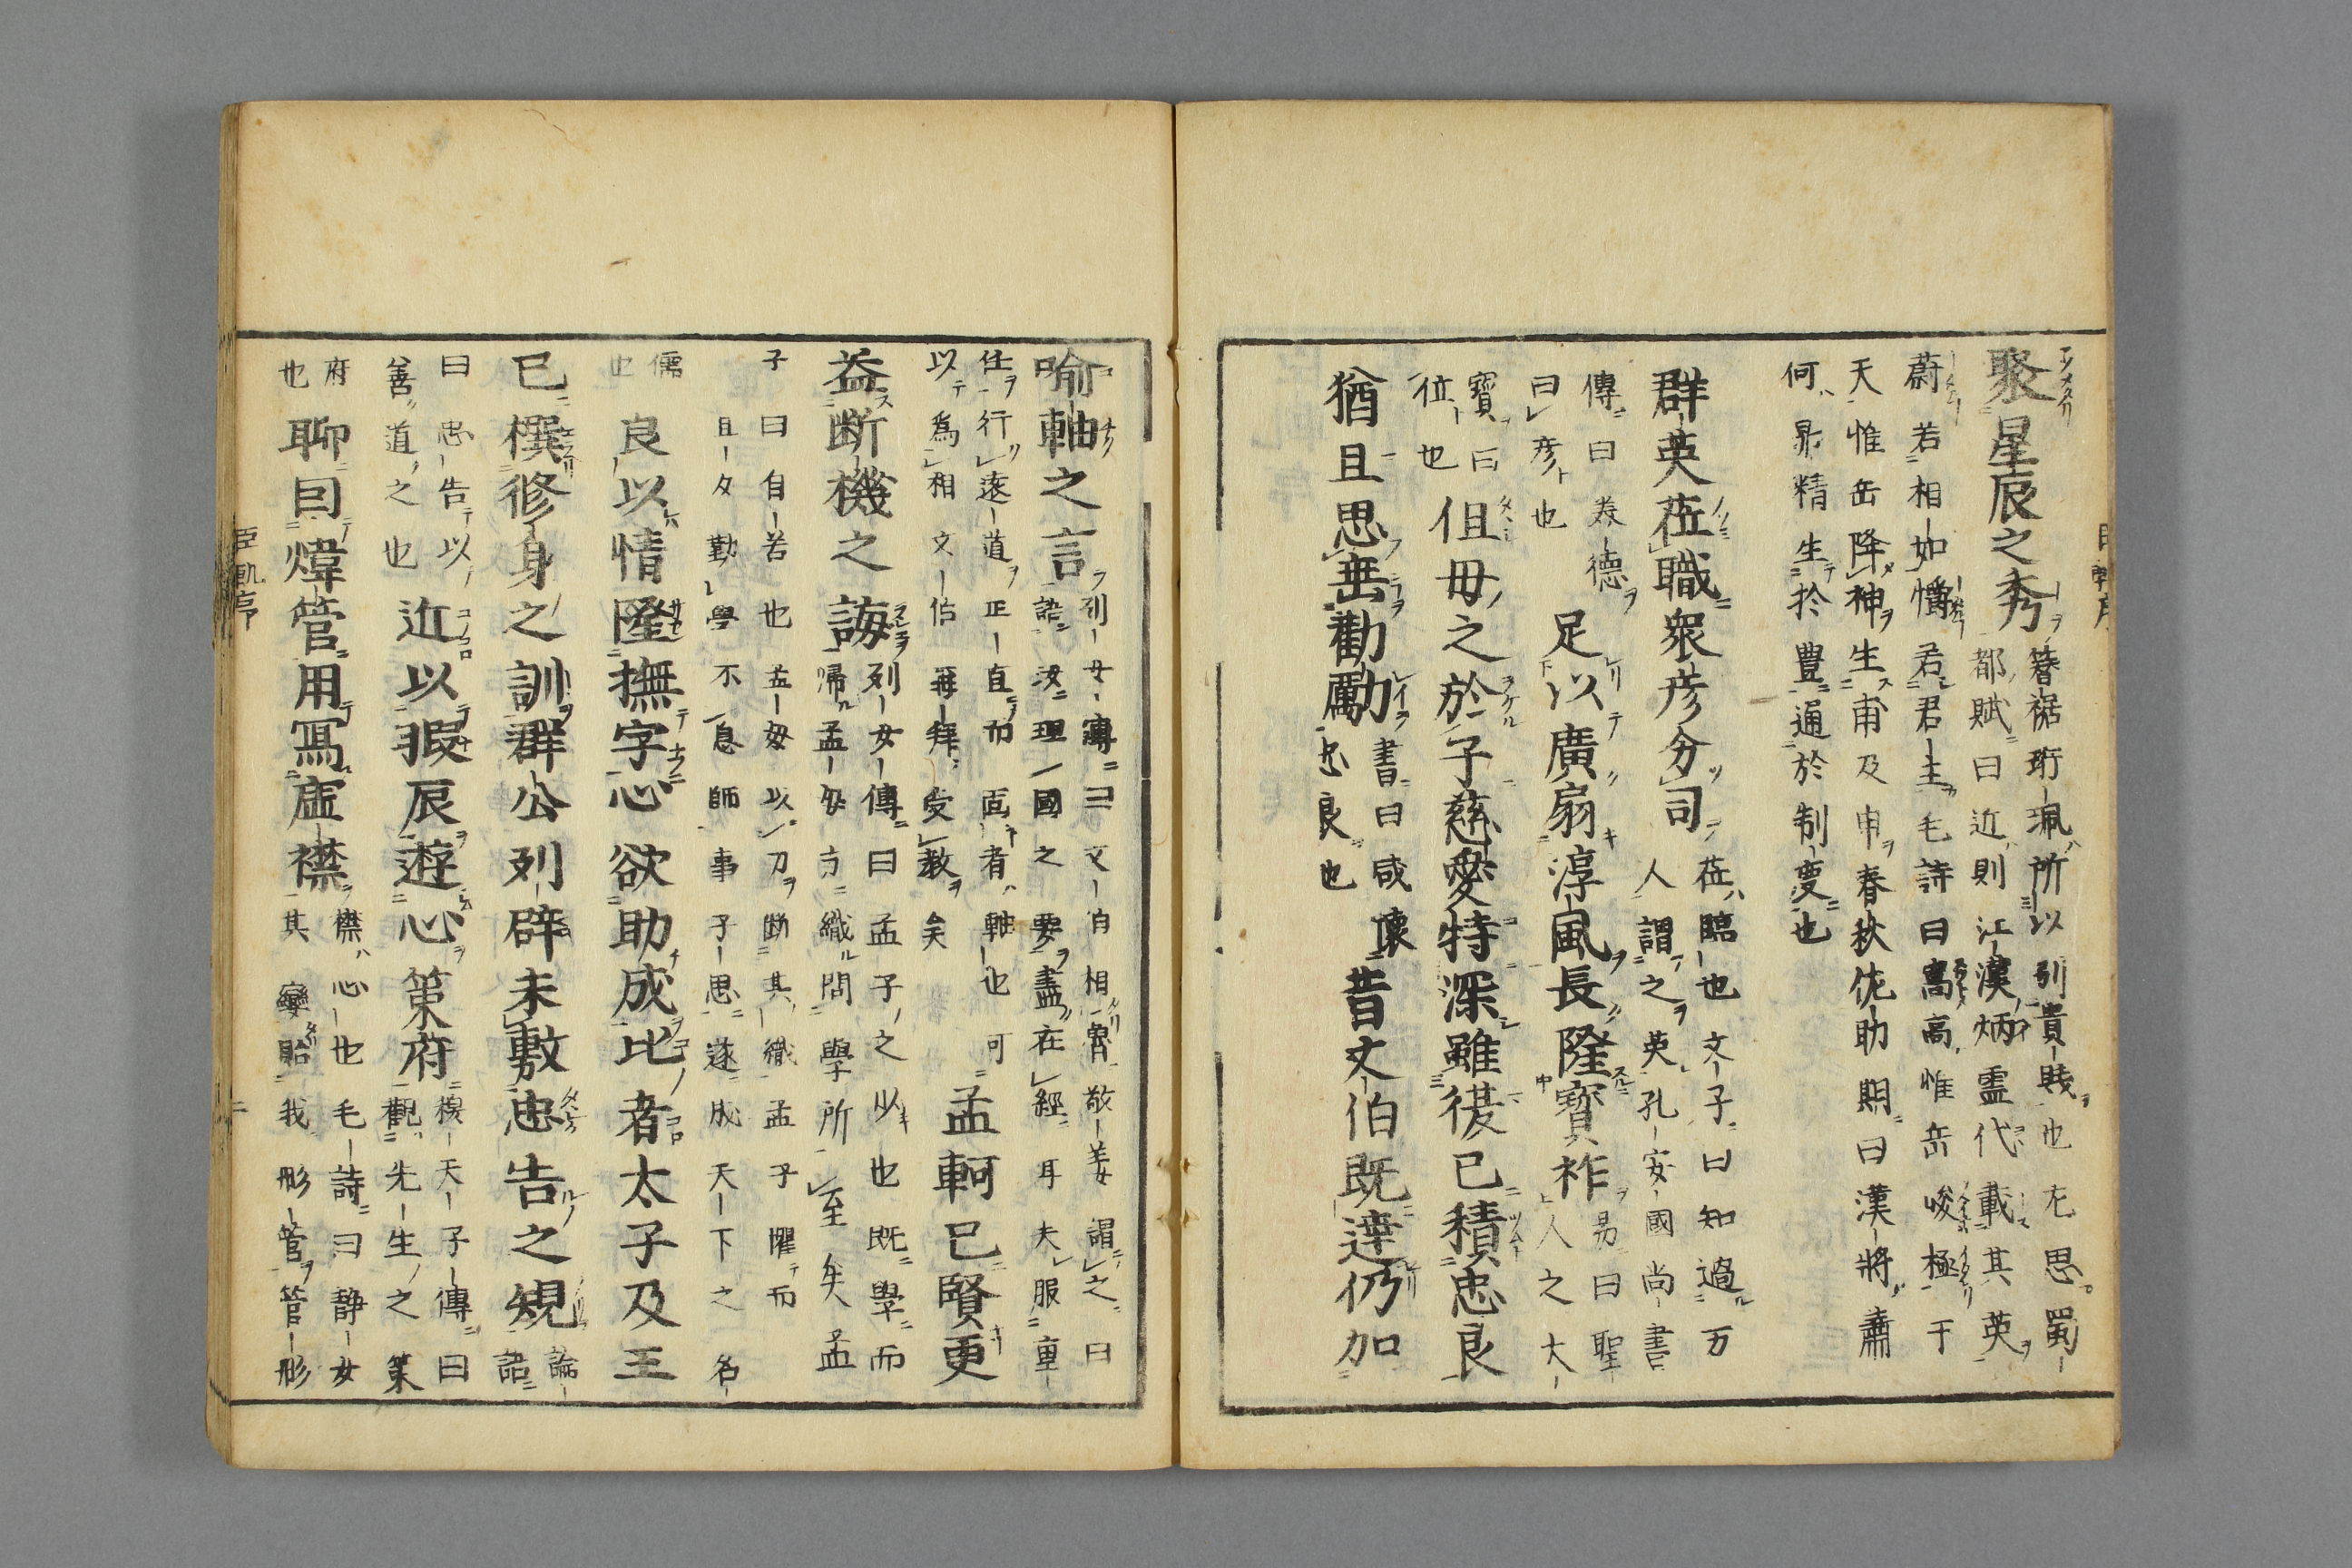 聚星辰之秀簪裾珩珮所以別貴賤也尤思蜀
都賦曰近則江漢炳靈代載其英
蔚若相如㠢若君主毛詩曰嵩高惟岳峻極于
天惟岳降神生甫及申春秋佐助期曰漢將蕭
何昴精生於豊通於制度也
群英莅職衆彦分司莅臨也文子曰知過万
人謂之英孔安國尚書
傳曰美德
曰彦也
足以廣扇淳風長隆寳祚易曰聖
人之大
寳曰
位也
但母之於子慈愛特深雖復已積忠良
猶且思垂勸勵書曰咸懐
忠良也
昔文伯既達仍加
喻軸之言列女傳曰文伯相魯敬姜謂之曰
語汝理國之要盡在經耳夫服重
任行遠道正直而固者軸也可
以為相文伯再拜受教矣
孟軻已賢更
益断機之誨列女傳曰孟子之少也既學而
歸孟母方織問學所至矣孟
子曰自若也孟母以刀断其織孟子懼而
且夕勤學不息師事子思遂成天下之名
儒
也
良以情隆撫字心欲助成比者太子及王
已撰修身之訓群公列辟未敷忠告之規論
語
曰忠告以
善道之也
近以暇辰遊心策府穆天子傳曰
觀先生之策
府
也
聊因煒管用寫虚襟襟心也毛詩曰静女
其孌貽我彤管管彤
臣軌序
二